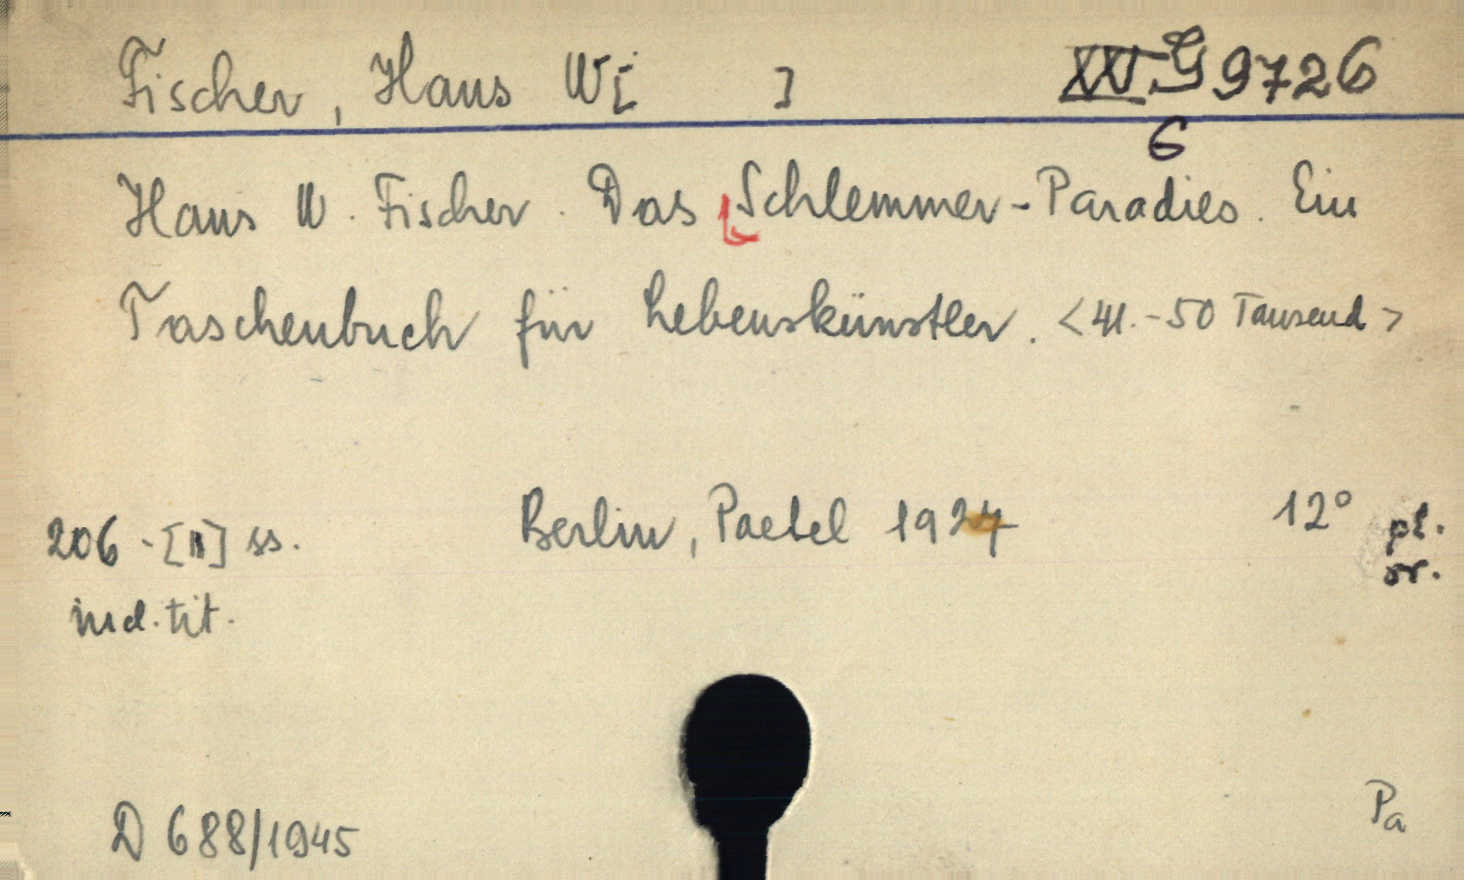 Fischer, Hans W[ ] G 9726
6
Hans W. Fischer. Das Schlemmer-Paradies. Ein
Taschenbuch für Lebenskünstler. <41.-50 Tausend>
206 - [ ] ss. Berlin, Paetel 1924 12° pl.
or.
ind. tit.
D 688/1945 Pa